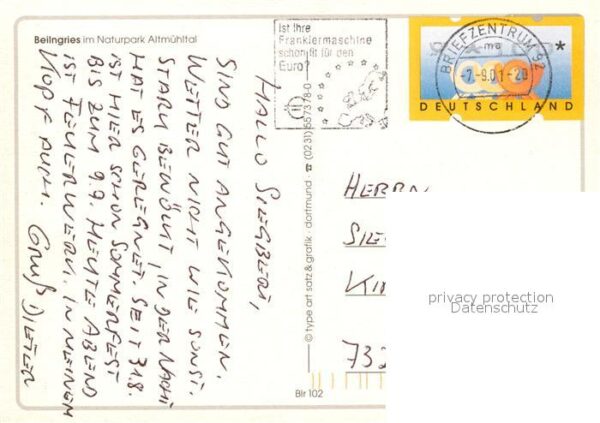 Beilngries im Naturpark Altmühltal
HALLO SIEGBERT,
SIND GUT ANGEKOMMEN.
WETTER NICHT WIE SONST.
STARK BEWÖLKT, IN DER NACHT
HAT ES GEREGNET. SEIT 31.8.
IST HIER SCHON SOMMERFEST
BIS ZUM 9.9. HEUTE ABEND
IST FEUERWERK. IN MEINEM
KOPF AUCH. Gruß DIETER
© type art satz & grafik · dortmund · ☎ (0231) 557378-0
Blr 102
Ist Ihre
Frankiermaschine
schon fit für den
Euro?
BRIEFZENTRUM 92
ma
-7.-9.01-20
*
DEUTSCHLAND
HERRN
SIE
732
privacy protection
Datenschutz